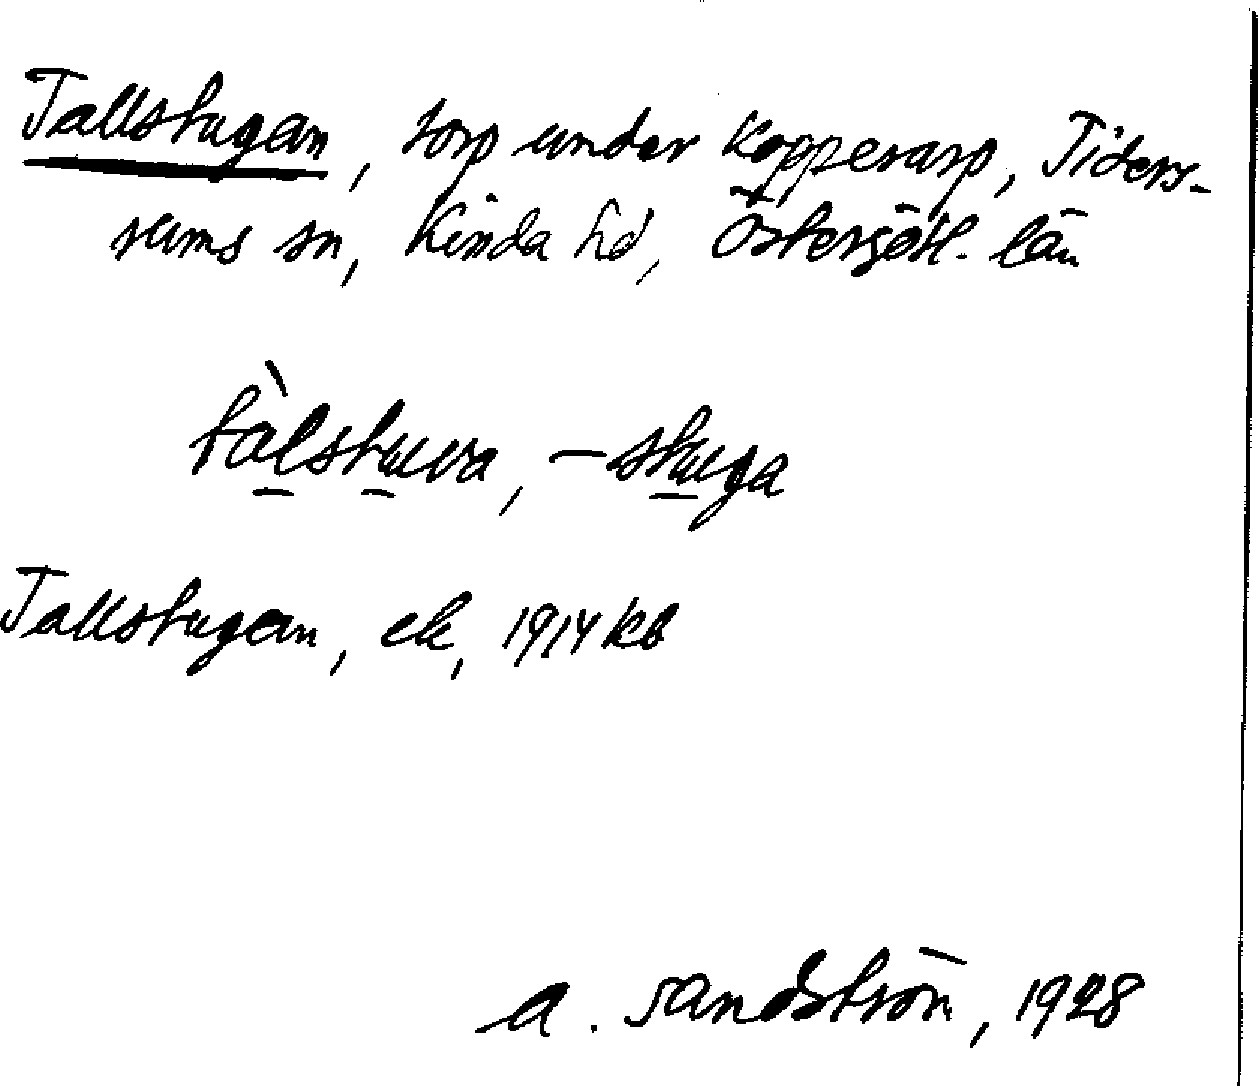 Tallstugan, torp under Kopperarp, Tiders-
rums sn, Kinda hd, Östergötl. län
tàlstuvva, -stuga
Tallstugan, ek, 1914 kb
A. Sandström, 1928